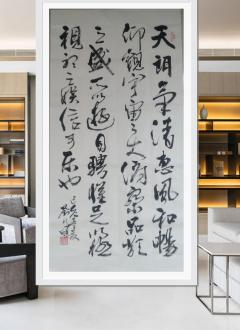 天朗氣清惠風和暢
仰觀宇宙之大俯察品類
之盛所以遊目騁懷足以極
視聽之娛信可樂也